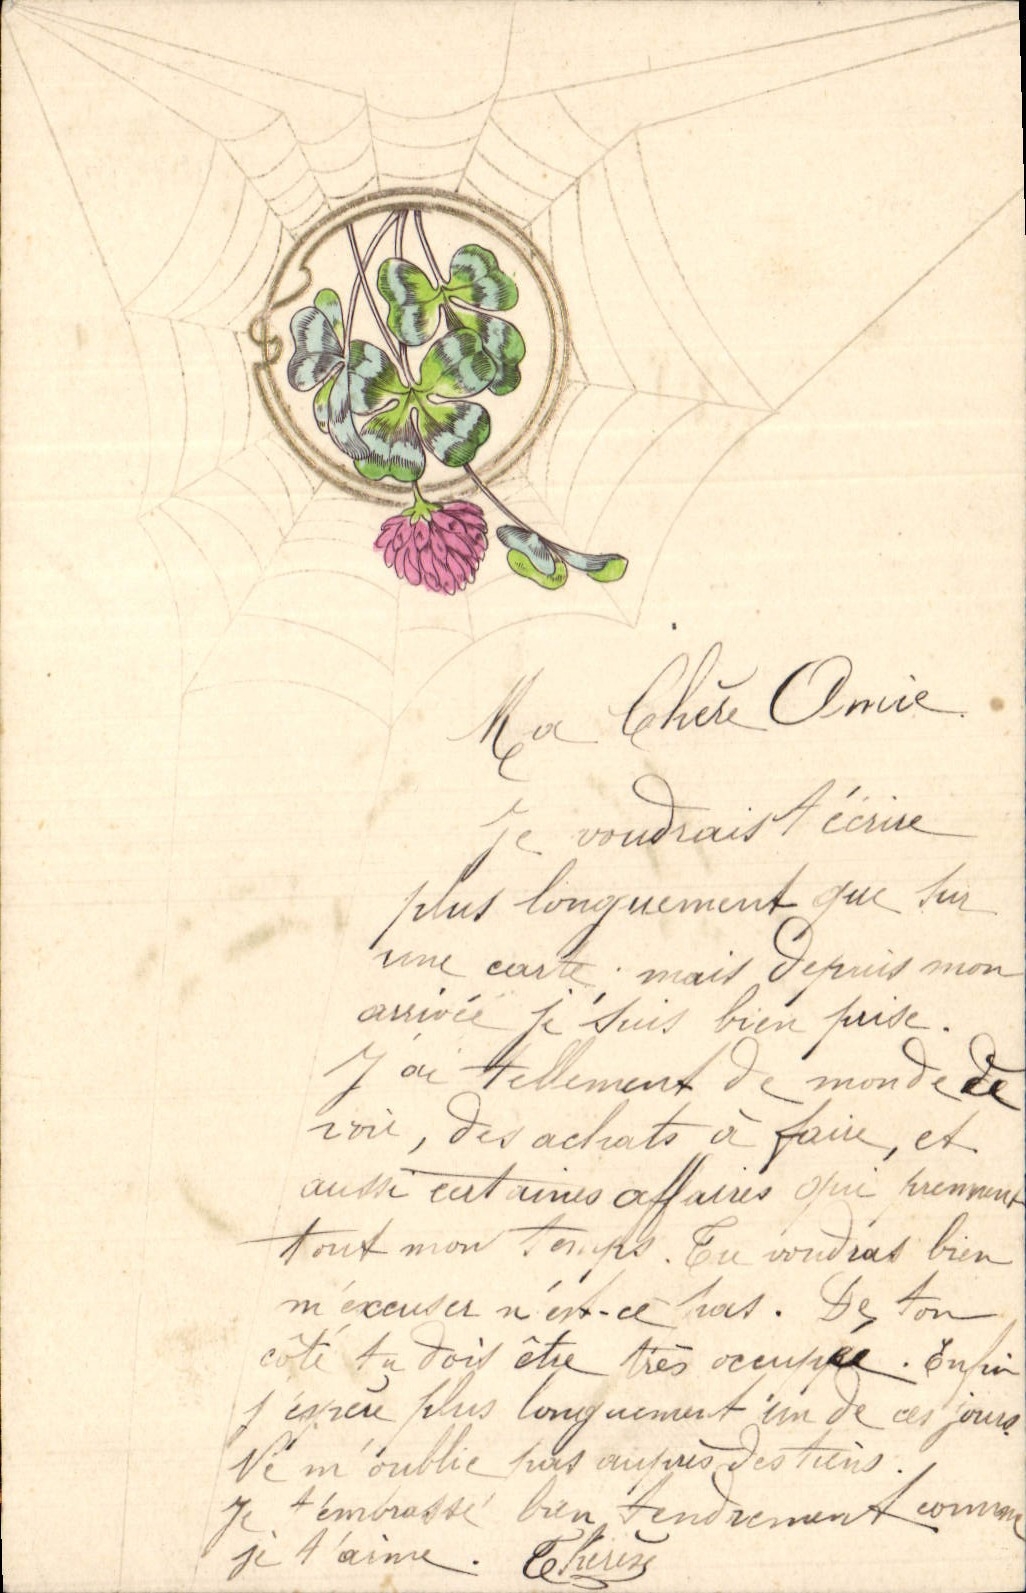 Ma Chère Amie
Je voudrais t'écrire
plus longuement que sur
une carte. mais depuis mon
arrivée je suis bien prise.
J'ai tellement de monde de
voir, des achats à faire, et
aussi certaines affaires qui prennent
tout mon temps. Tu voudras bien
m'excuser n'est-ce pas. De ton
côté tu dois être très occupée. Enfin
j'éspère plus longuement un de ces jours.
Ne m'oublie pas auprès des tiens.
Je t'embrasse bien tendrement comme
je t'aime. Thérèse